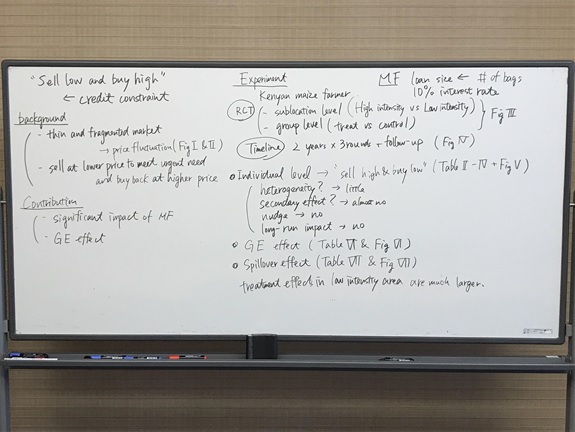 "Sell low and buy high"
← credit constraint
background
- thin and fragmented market
→ price fluctuation (Fig I & II)
- sell at lower price to meet urgent need
and buy back at higher price
Contribution
- significant impact of MF
- GE effect
Experiment
Kenyan maize farmer
RCT - sublocation level (High intensity vs Low intensity)
- group level (treat vs control)
Fig III
MF loan size ← # of bags
10% interest rate
Timeline 2 years × 3 rounds + follow-up (Fig IV)
• Individual level → "sell high & buy low" (Table II - IV + Fig V)
heterogeneity? → little
secondary effect? → almost no
nudge → no
long-run impact → no
• GE effect (Table VI & Fig VI)
• Spillover effect (Table VII & Fig VII)
treatment effects in low intensity area are much larger.